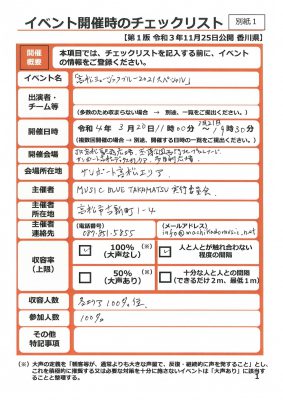 イベント開催時のチェックリスト
別紙1
【第1版 令和3年11月25日公開 香川県】
開催概要
本項目では、チェックリストを記入する前に、イベントの情報をご登録ください。
イベント名
「高松ミュージックブルー2021スペシャル」
出演者・チーム等
(多数のため収まらない場合 → 別途、一覧をご提出ください。)
開催日時
令和4年3月20日11時00分
~19時30分
(複数回開催の場合 → 別途、開催する日時の一覧をご提出ください。)
開催会場
会場所在地
サンポート高松エリア
主催者
MUSIC BLUE TAKAMATSU 実行委員会
主催者所在地
高松市古新町1-4
主催者連絡先
(電話番号)
087-851-5855
(メールアドレス)
info@machikadomusic.net
収容率(上限)
100% (※)
(大声なし)
人と人とが触れ合わない程度の間隔
50% (※)
(大声あり)
十分な人と人との間隔
(できるだけ2m、最低1m)
収容人数
各エリア100名位
参加人数
100名
その他特記事項
(※)大声の定義を「観客等が、通常よりも大きな声量で、反復・継続的に声を発すること」とし、
これを積極的に推奨する又は必要な対策を十分に施さないイベントは「大声あり」に該当することと整理する。
1